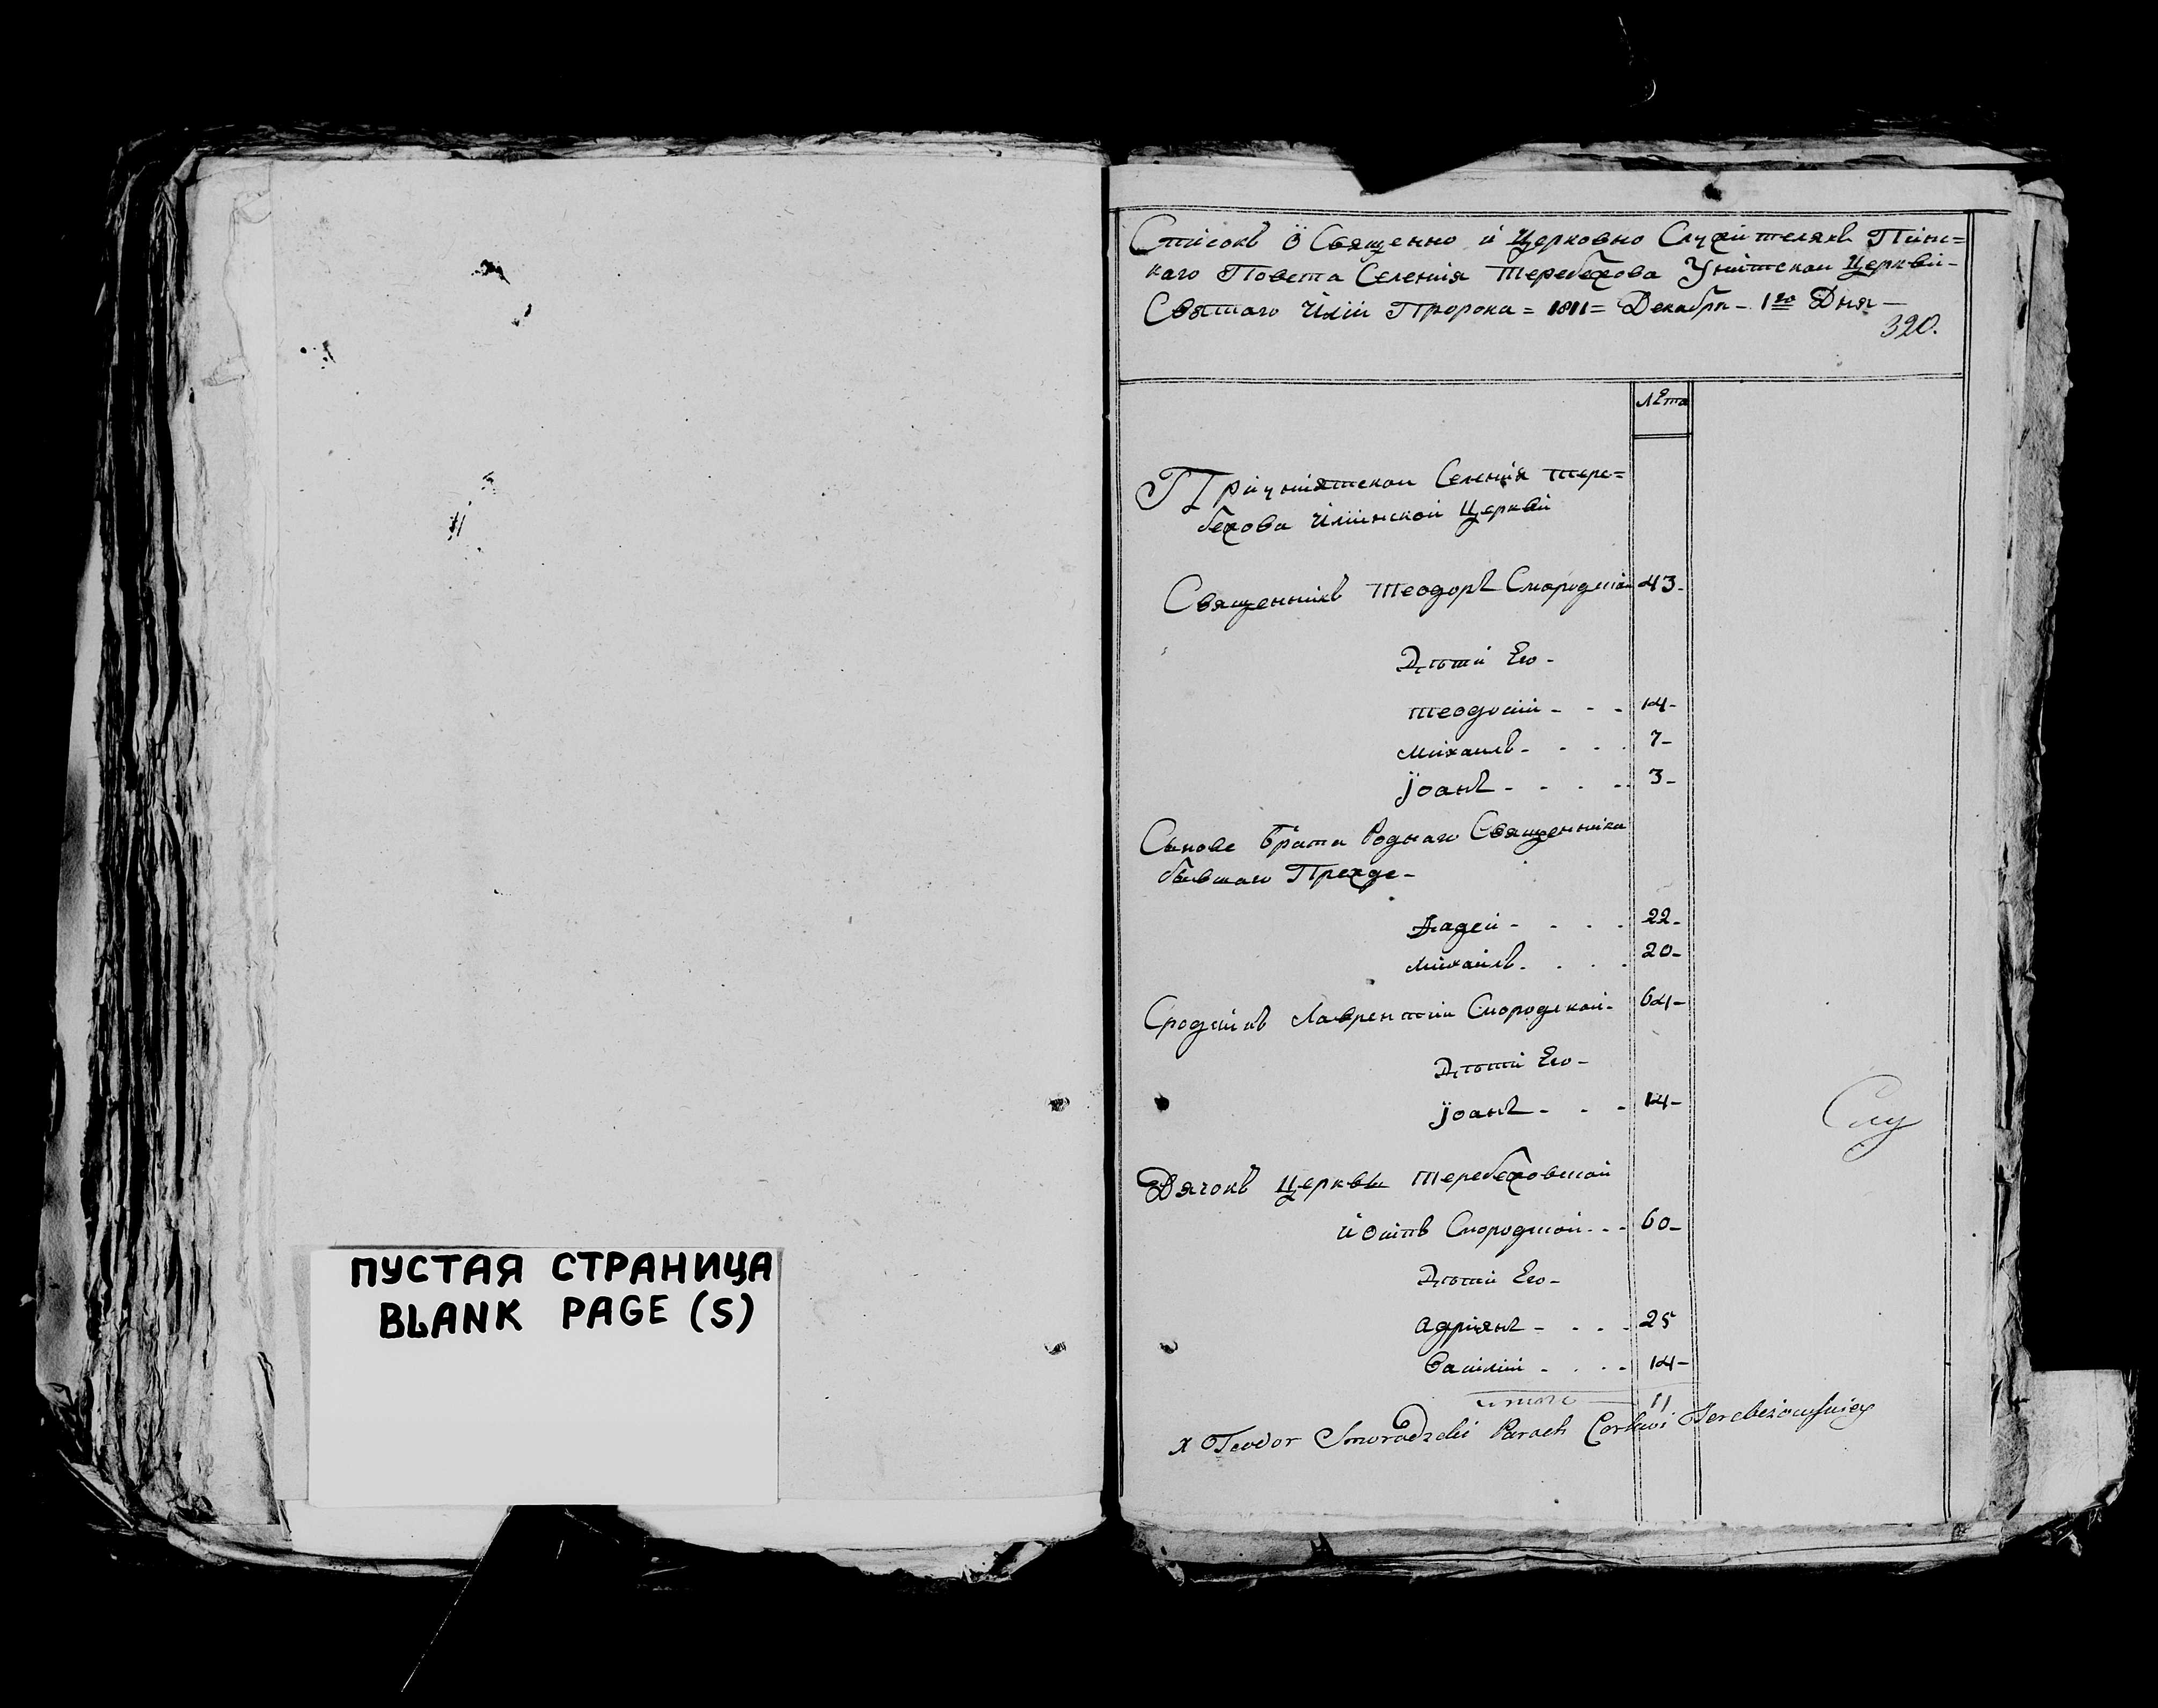 ПУСТАЯ СТРАНИЦА
BLANK PAGE (S)
Список ъ О Священно и Церковно Служителяхъ Пинс=
каго Повета Селения Теребежова Унитской Церкви-
Святаго Илiи Пророка = 1811 = Декабря - 1го Дня -
320.
лета
При унiятской Селения Тере=
бежова Илiинской Церкви
Священникъ Теодоръ Смородский 43-
Дѣти Его -
Теодосiй - - - 14-
Михаилъ - - - 7-
Jоанъ - - - - 3-
Сынове Брата Роднаго Священника
бывшаго Прежде -
Фадей - - - - 22-
Михаилъ - - - 20-
Сродникъ Лаврентiй Смородской - 64-
Дѣти Его -
Jоанъ - - - 14-
Слу
Дячокъ Церквы Теребежовской
Иосипъ Смородской - - - 60-
Дѣти Его -
Адрiянъ - - - - 25
Василiй - - - - 14-
итого 11
X Teodor Smorodzki Paroch Cerkwi